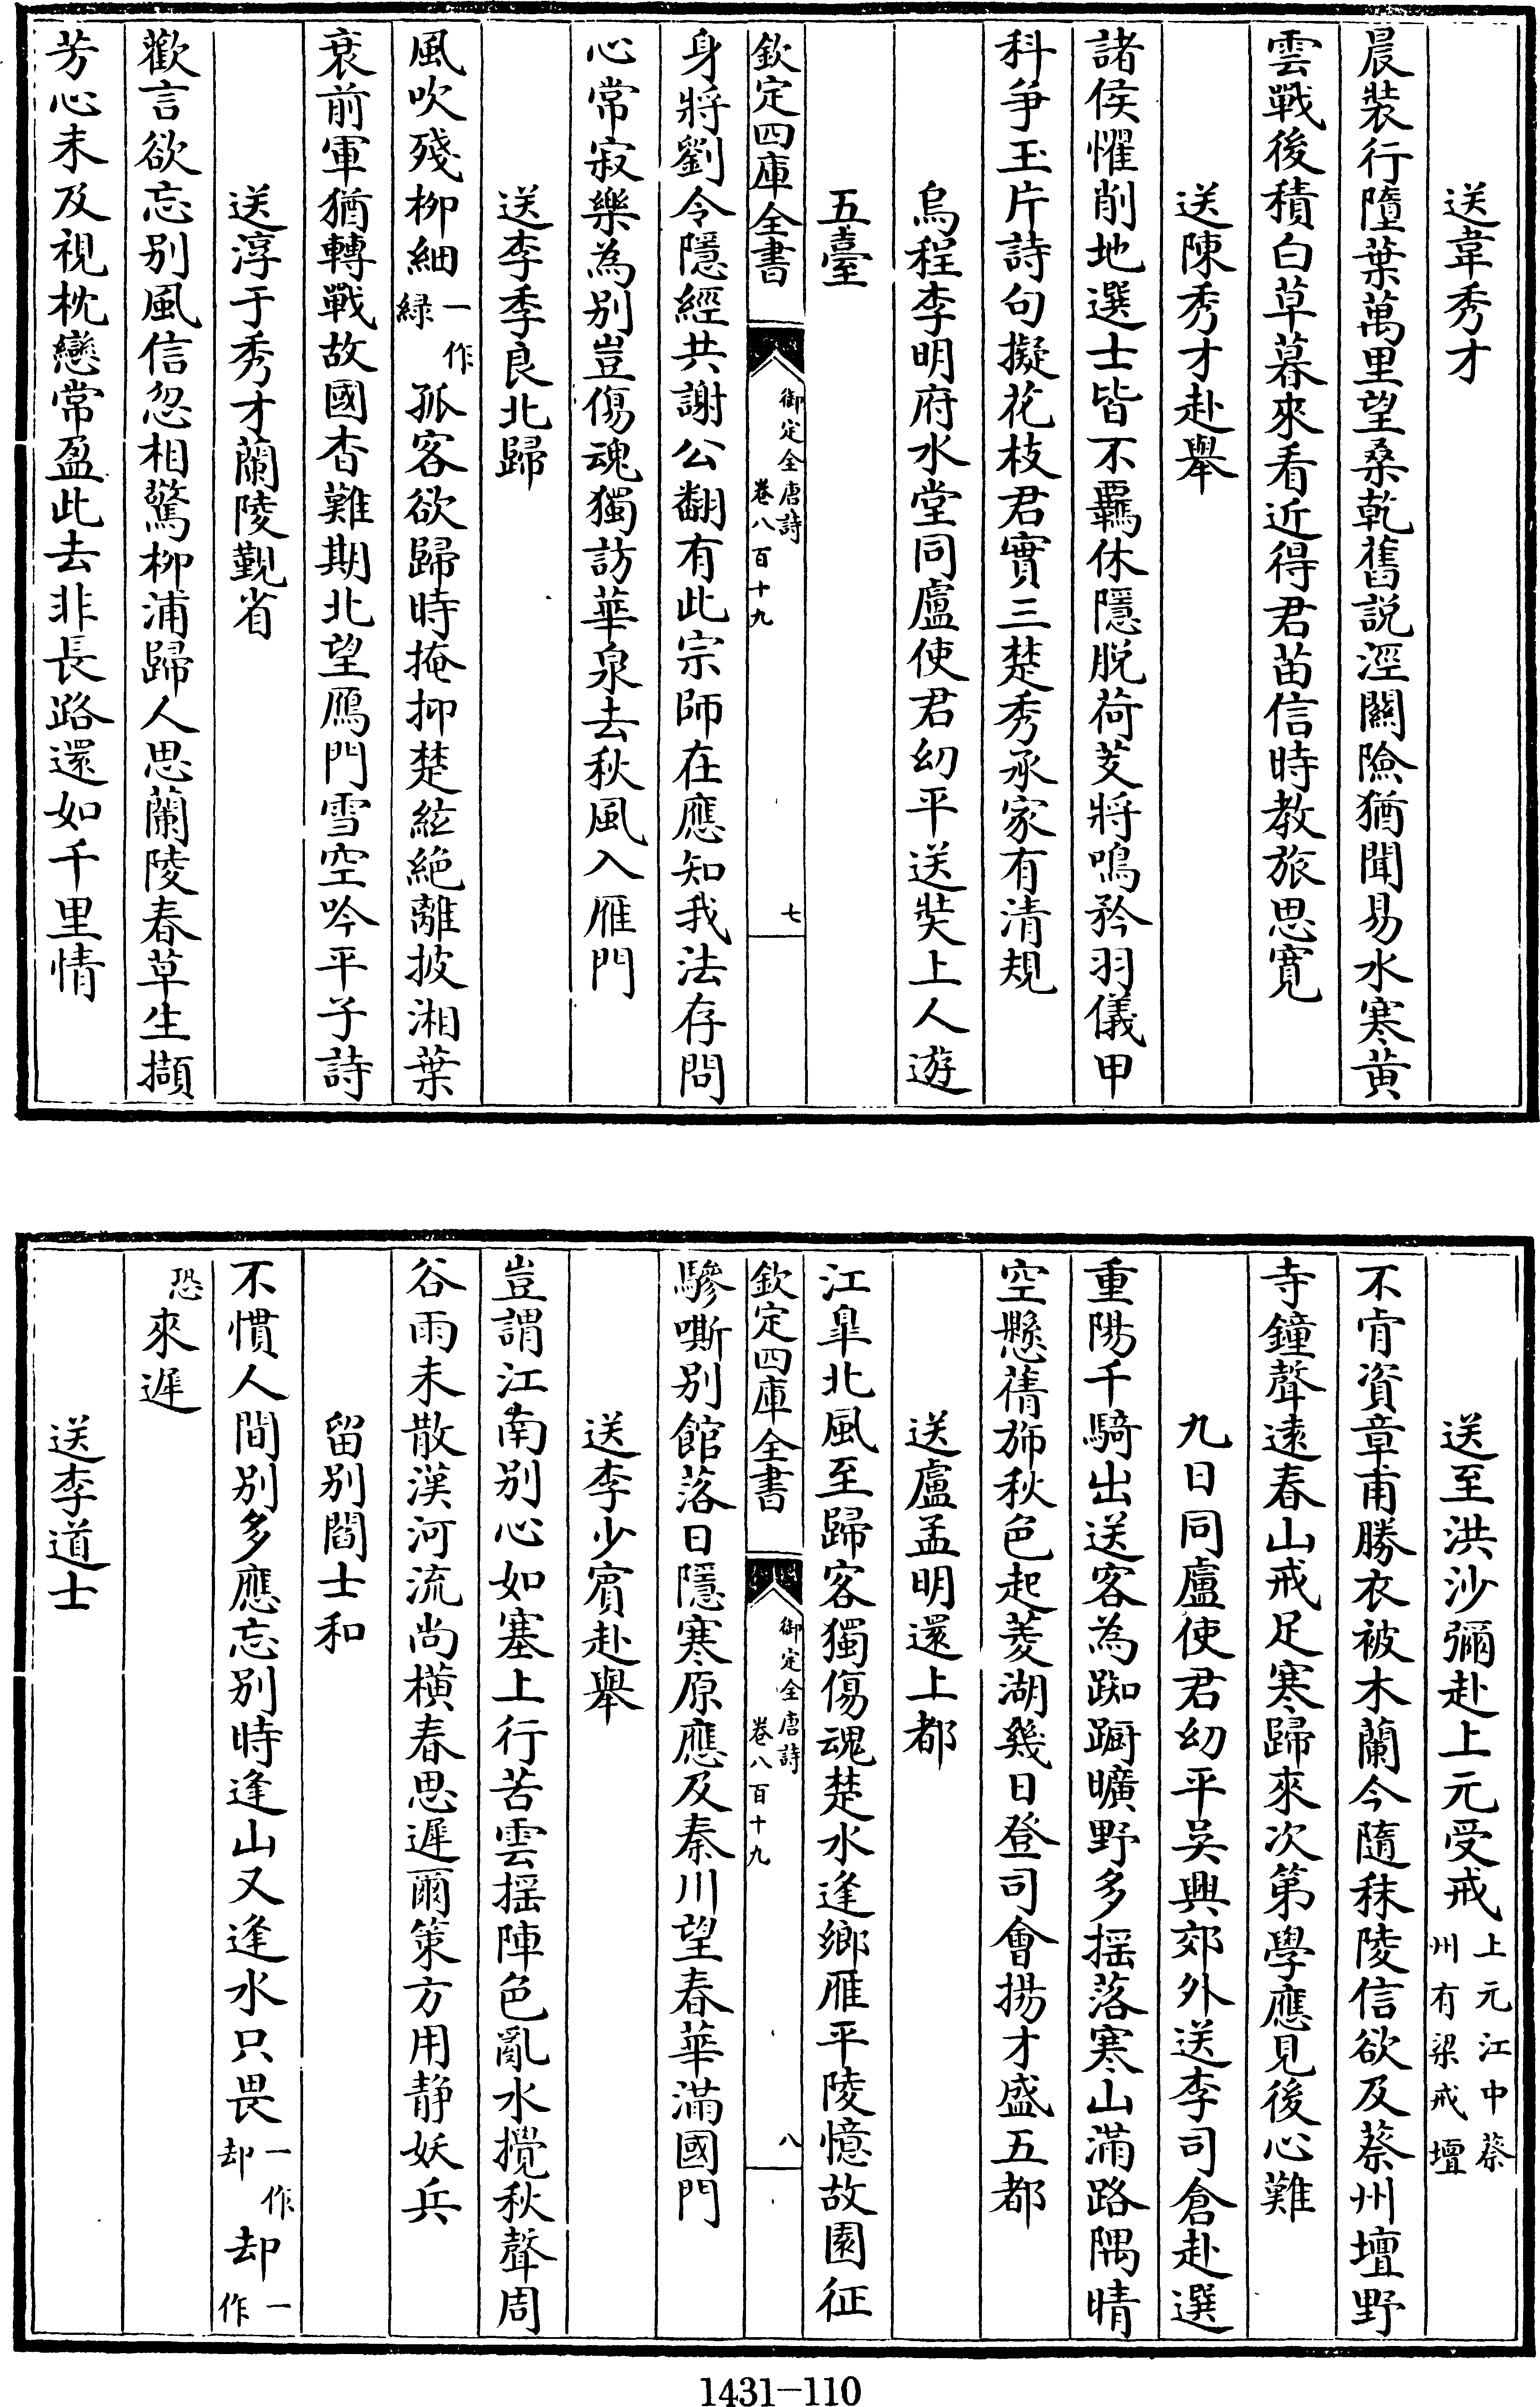 送韋秀才
晨裝行墮葉萬里望桑乾舊説涇關險猶聞易水寒黄
雲戰後積白草暮來看近得君苗信時教旅思寛
送陳秀才赴舉
諸侯懼削地選士皆不羈休隱脱荷芰將鳴矜羽儀甲
科爭玉片詩句擬花枝君實三楚秀承家有清規
烏程李明府水堂同盧使君幼平送奘上人遊
五臺
欽定四庫全書
御定全唐詩
卷八百十九
七
身將劉令隱經共謝公翻有此宗師在應知我法存問
心常寂樂為别豈傷魂獨訪華泉去秋風入雁門
送李季良北歸
風吹殘柳細一作緑孤客欲歸時掩抑楚絃絶離披湘葉
衰前軍猶轉戰故國杳難期北望鴈門雪空吟平子詩
送淳于秀才蘭陵覲省
歡言欲忘别風信忽相驚柳浦歸人思蘭陵春草生擷
芳心未及視枕戀常盈此去非長路還如千里情
送至洪沙彌赴上元受戒上元江中蔡州有梁戒壇
不肯資章甫勝衣被木蘭今隨秣陵信欲及蔡州壇野
寺鐘聲遠春山戒足寒歸來次第學應見後心難
九日同盧使君幼平吳興郊外送李司倉赴選
重陽千騎出送客為踟蹰曠野多摇落寒山滿路隅晴
空懸蒨斾秋色起菱湖幾日登司會揚才盛五都
送盧孟明還上都
江臯北風至歸客獨傷魂楚水逢鄉雁平陵憶故園征
欽定四庫全書
御定全唐詩
卷八百十九
八
驂嘶别館落日隱寒原應及秦川望春華滿國門
送李少賔赴舉
豈謂江南别心如塞上行苦雲摇陣色亂水攪秋聲周
谷雨未散漢河流尚橫春思遲爾策方用静妖兵
留别閻士和
不慣人間别多應忘别時逢山又逢水只畏一作却却一作
恐來遲
送李道士
1431-110